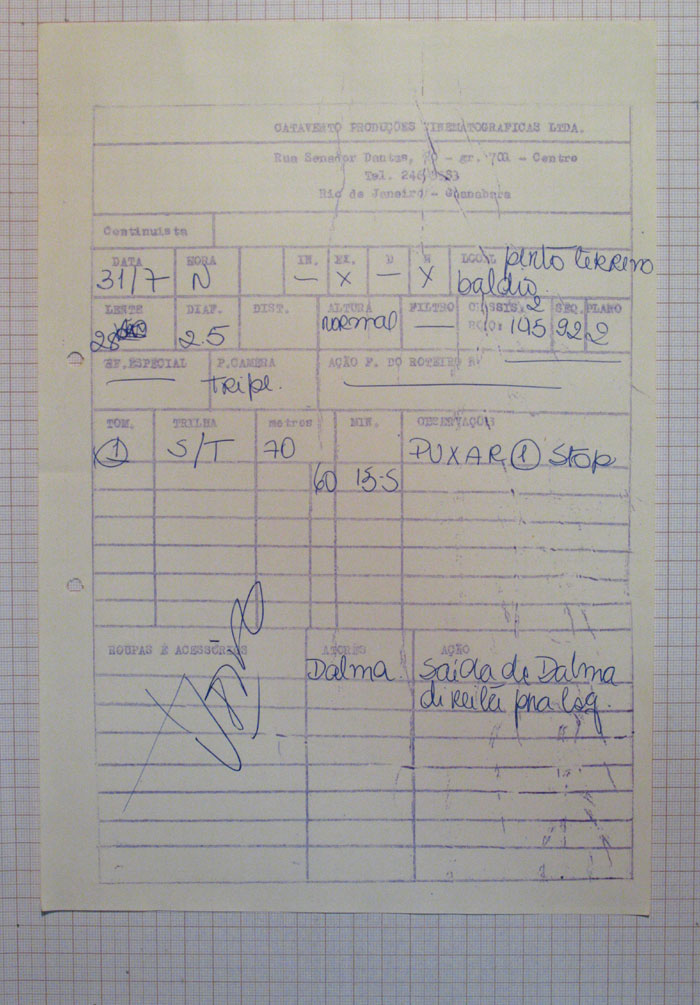 CATAVENTO PRODUÇÕES CINEMATOGRAFICAS LTDA.
Rua Senador Dantas, - gr. 701 - Centro
Tel. 246
Rio de Janeiro - Guanabara
Continuista
DATA HORA IN. EX. D N LOCAL pinto terreno
31/7 N — X — X baldio
LENTE DIAF. DIST. ALTURA FILTRO CHASSIS: 2 SEQ. PLANO
28 2.5 normal — ROLO: 145 92 2
EF.ESPECIAL P.CAMERA AÇÃO P. DO ROTEIRO
— tripe.
TOM. TRILHA metros MIN. OBSERVAÇÕES
1 S/T 70 PUXAR 1 Stop
60 15.5
ROUPAS E ACESSÓRIOS ATORES AÇÃO
Dalma. Saida de Dalma
direita pra Esq.